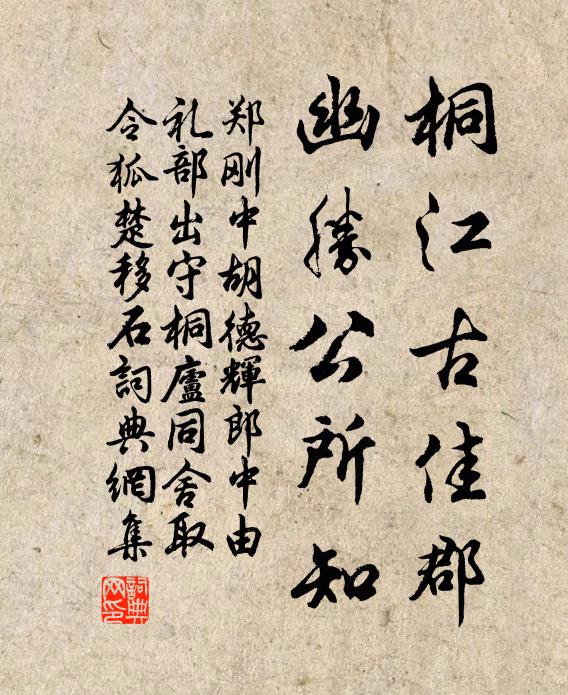 桐江古佳郡
幽勝公所知
郑刚中胡德輝郎中由
礼部出守桐廬同舍取
令狐楚移石詞典網集
詞典网印